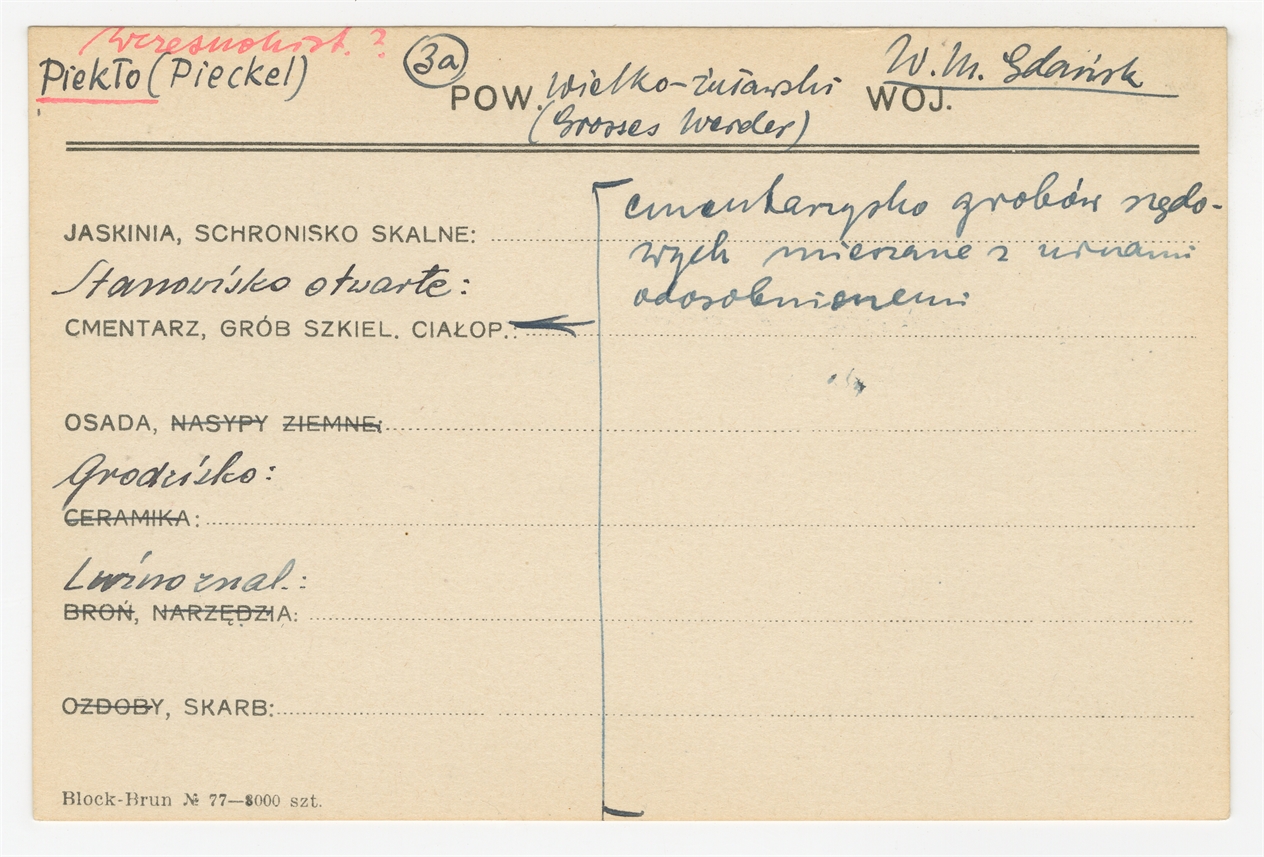 wczesnohist. ?
Piekło (Pieckel)
3a
POW. Wielko-żuławski
(Grosses Werder)
WOJ. W. M. Gdańsk
cmentarzysko grobów rzędo-
wych mieszane z urnami
odosobnionemi
JASKINIA, SCHRONISKO SKALNE:
Stanowisko otwarte:
CMENTARZ, GRÓB SZKIEL. CIAŁOP.:
OSADA, NASYPY ZIEMNE:
Grodzisko:
CERAMIKA:
Luźno znal.:
BROŃ, NARZĘDZIA:
OZDOBY, SKARB:
Block-Brun № 77—8000 szt.